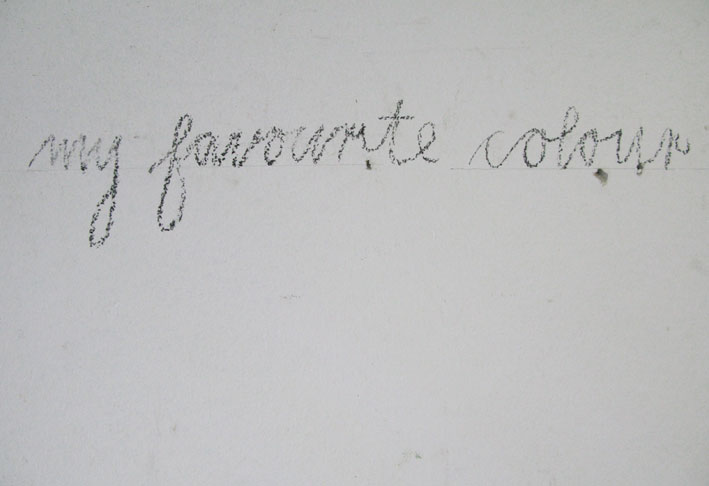 my favourite colour